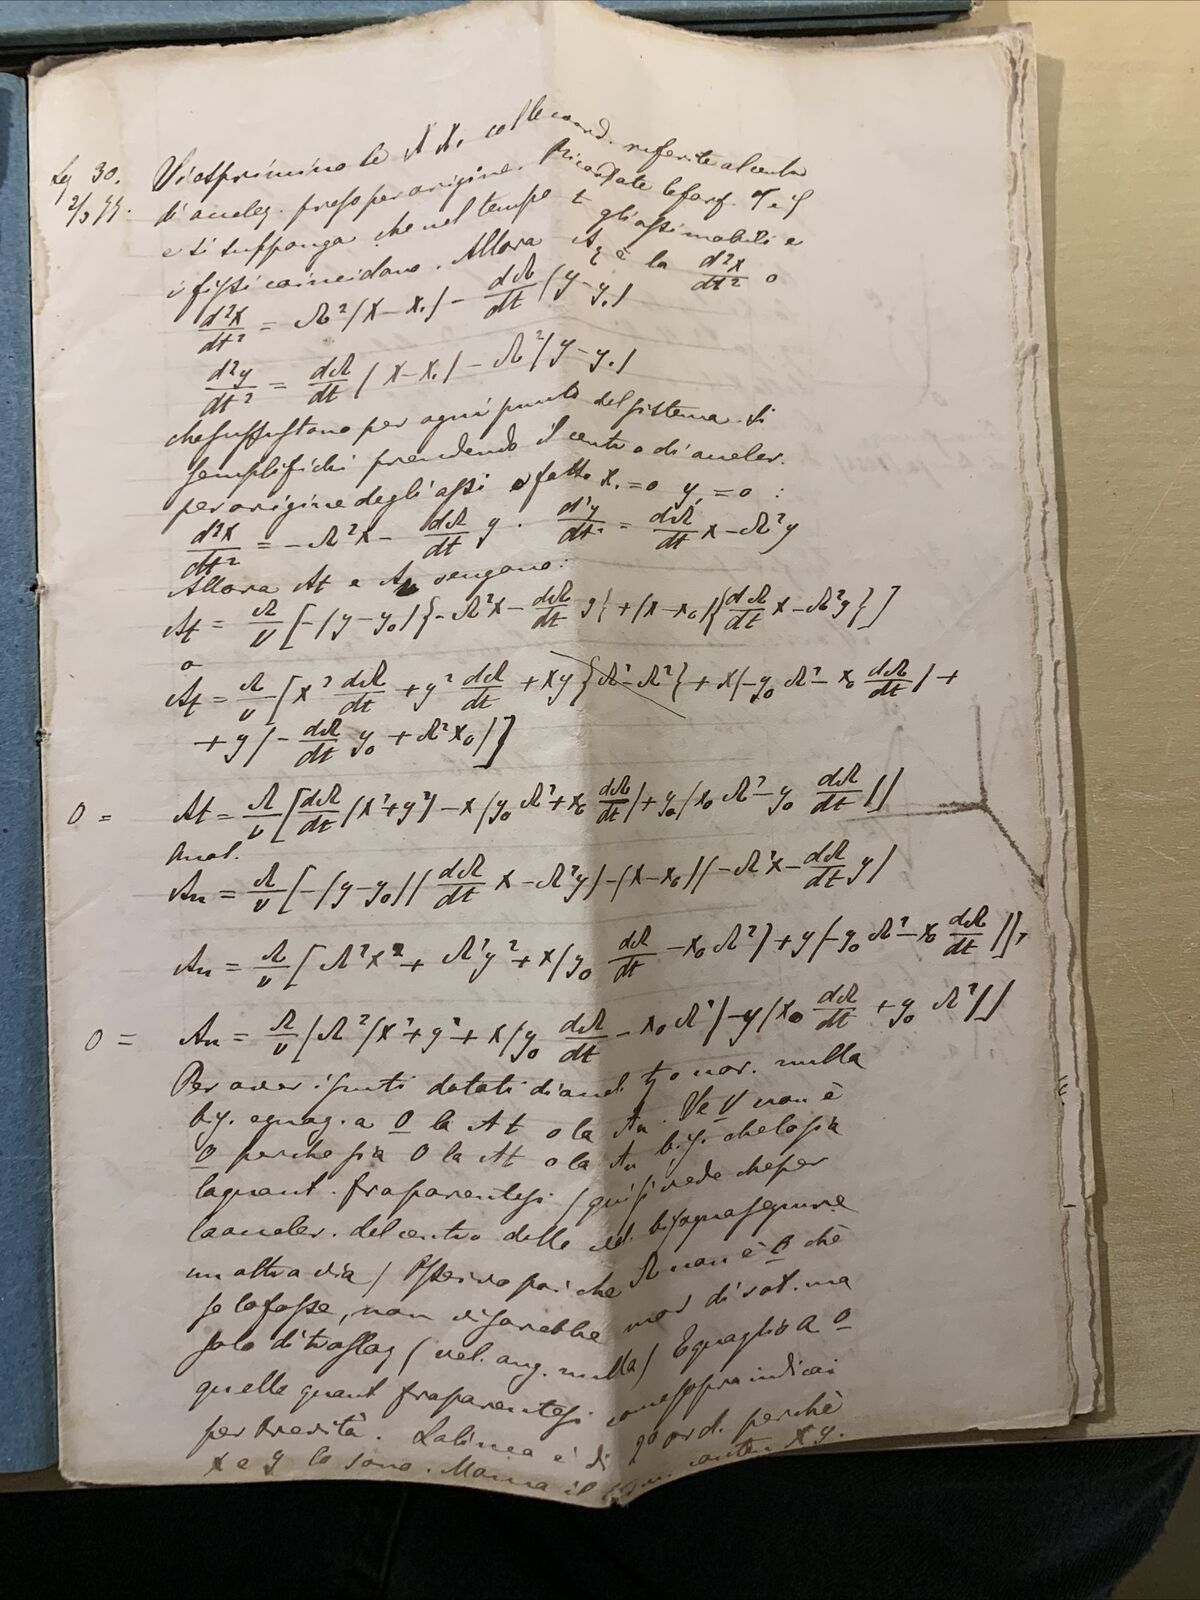 Leg 30. Si esprimino le X X, colle coord. riferite al centro
2/3 99. di acceleq. preso per origine. Ricordate le form.
e si supponga che nel tempo t gli assi mobili e
i fissi coincidano. Allora A è la d²x/dt² o
d²x/dt² = Ω²(x-x₁) - dΩ/dt (y-y₁)
d²y/dt² = dΩ/dt (x-x₁) - Ω²(y-y₁)
che sussistono per ogni punto del sistema. Si
semplifichi prendendo il centro di acceler.
per origine degli assi e fatto x₁=0 y₁=0 :
d²x/dt² = -Ω²x - dΩ/dt y . d²y/dt² = dΩ/dt x - Ω²y
Allora At e An vengono:
At = Ω/v [-(y-y₀){-Ω²x - dΩ/dt y} + (x-x₀){dΩ/dt x - Ω²y}]
o
At = Ω/v [x² dΩ/dt + y² dΩ/dt + xy{Ω²-Ω²} + x(-y₀Ω² - x₀ dΩ/dt) +
+ y(- dΩ/dt y₀ + Ω²x₀)]
0 = At = Ω/v [dΩ/dt (x²+y²) - x(y₀Ω² + x₀ dΩ/dt) + y(x₀Ω² - y₀ dΩ/dt)]
Anal.
An = Ω/v [-(y-y₀)(dΩ/dt x - Ω²y) - (x-x₀)(-Ω²x - dΩ/dt y)
An = Ω/v [Ω²x² + Ω²y² + x(y₀ dΩ/dt - x₀Ω²) + y(-y₀Ω² - x₀ dΩ/dt)],
0 = An = Ω/v (Ω²(x²+y² + x(y₀ dΩ/dt - x₀Ω²) - y(x₀ dΩ/dt + y₀Ω²)]
Per aver i punti dotati di accel. tg o nor. nulla
bis. eguag. a 0 la At o la An. Se v non è
0 perchè sia 0 la At o la An bis. che lo sia
la quant. fra parentesi (qui si vede che per
la acceler. del centro delle vel. bisogna seguire
un altra via) Osservo poi che Ω non è 0 chè
se lo fosse, non vi sarebbe mov di rot. ma
solo di traslaz (vel. ang. nulla) Eguaglio a 0
quelle quant fra parentesi come sopra indicai
per brevità. La linea è di 2º ord. perchè
x e y lo sono. Manca il xy.